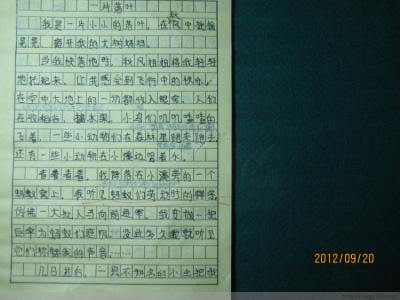 一片落叶
我是一片小小的落叶。在秋风中摇摇
晃晃，离开我的大树妈妈。
当我快落地时，我风姐姐将我轻轻
地托起来，让我感受到飞行中的快乐。
在空中大地上的一切都收入眼帘。人们
在收稻谷，摘水果。小鸟们叽叽喳喳的
飞着。一些小动物们在森林里跑来跑去
还有一些小动物在小溪边喝着水。
看着看着，我降落在小溪旁的一个
蚂蚁窝上。我听见蚂蚁们劳动时的
仿佛一大批人马向前进军。我变成一把
伞为蚂蚁们遮风。没过多久我就听见
它们
几日过去，一只不知名的小虫把我
2012/09/20